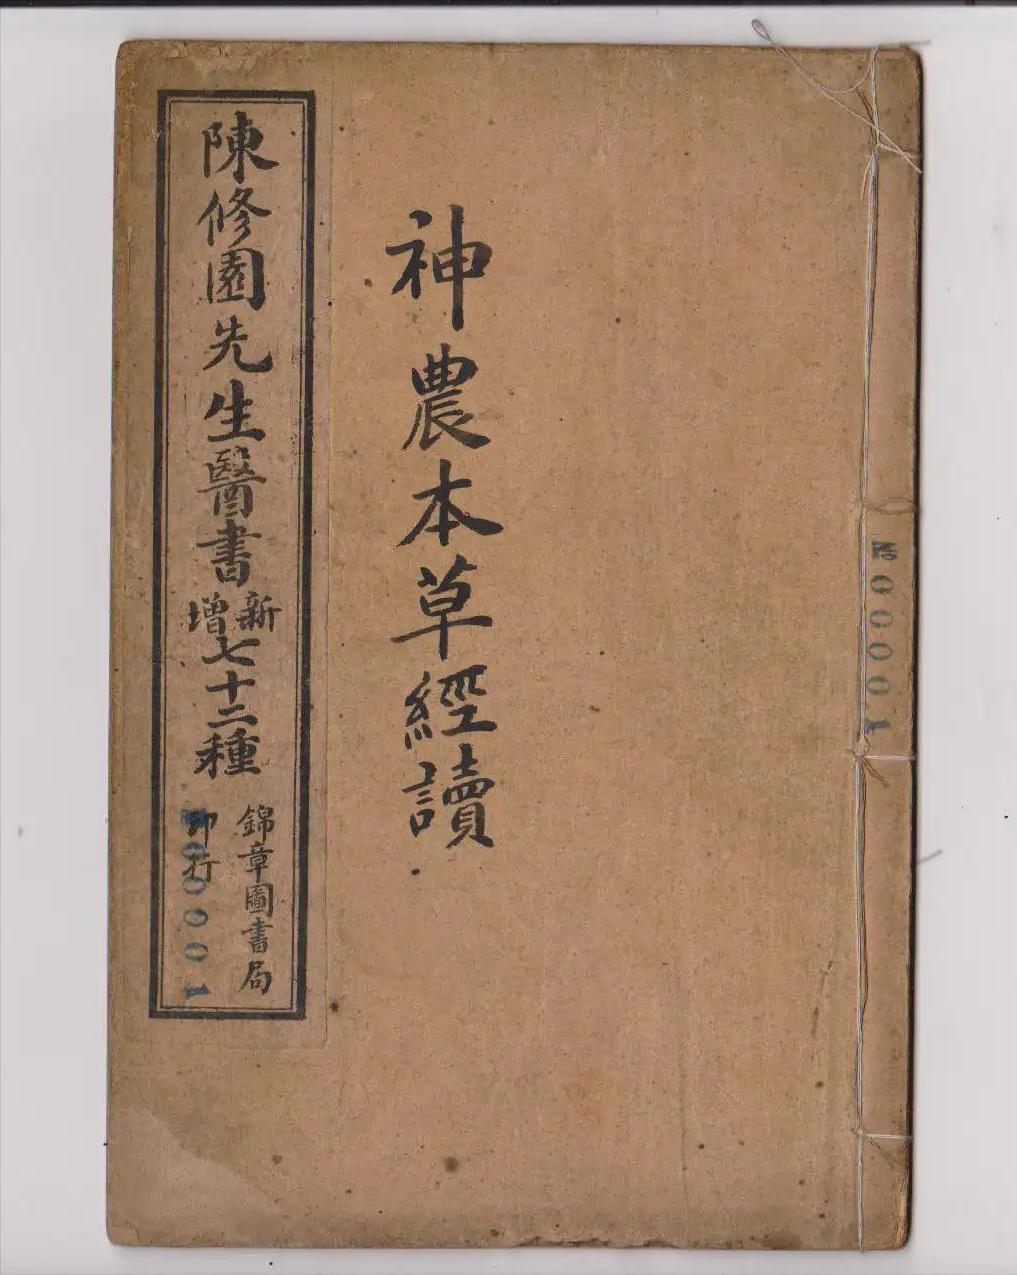 神農本草經讀
陳修園先生醫書新增七十二種
錦章圖書局
印行
00001
00001